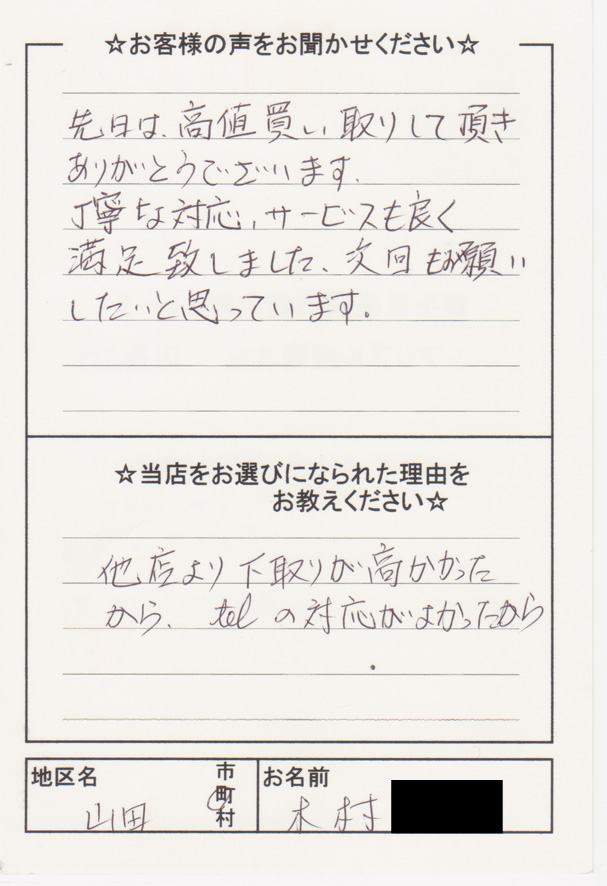 ☆お客様の声をお聞かせください☆
先日は、高値買い取りして頂き
ありがとうございます.
丁寧な対応,サービスも良く
満足致しました、次回もお願い
したいと思っています。
☆当店をお選びになられた理由を
お教えください☆
他店より下取りが高かかった
から、telの対応がよかったから
地区名 山田 市町村 お名前 木村